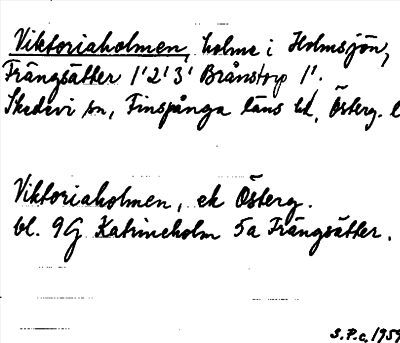 Viktoriaholmen, holme i Holmsjön,
Frängsätter 1¹ 2¹ 3¹ Brånstorp 1¹.
Skedevi sn, Finspånga läns hd, Österg. l
Viktoriaholmen, ek Österg.
bl. 9G Katrineholm 5a Frängsätter.
S.P.c. 1959